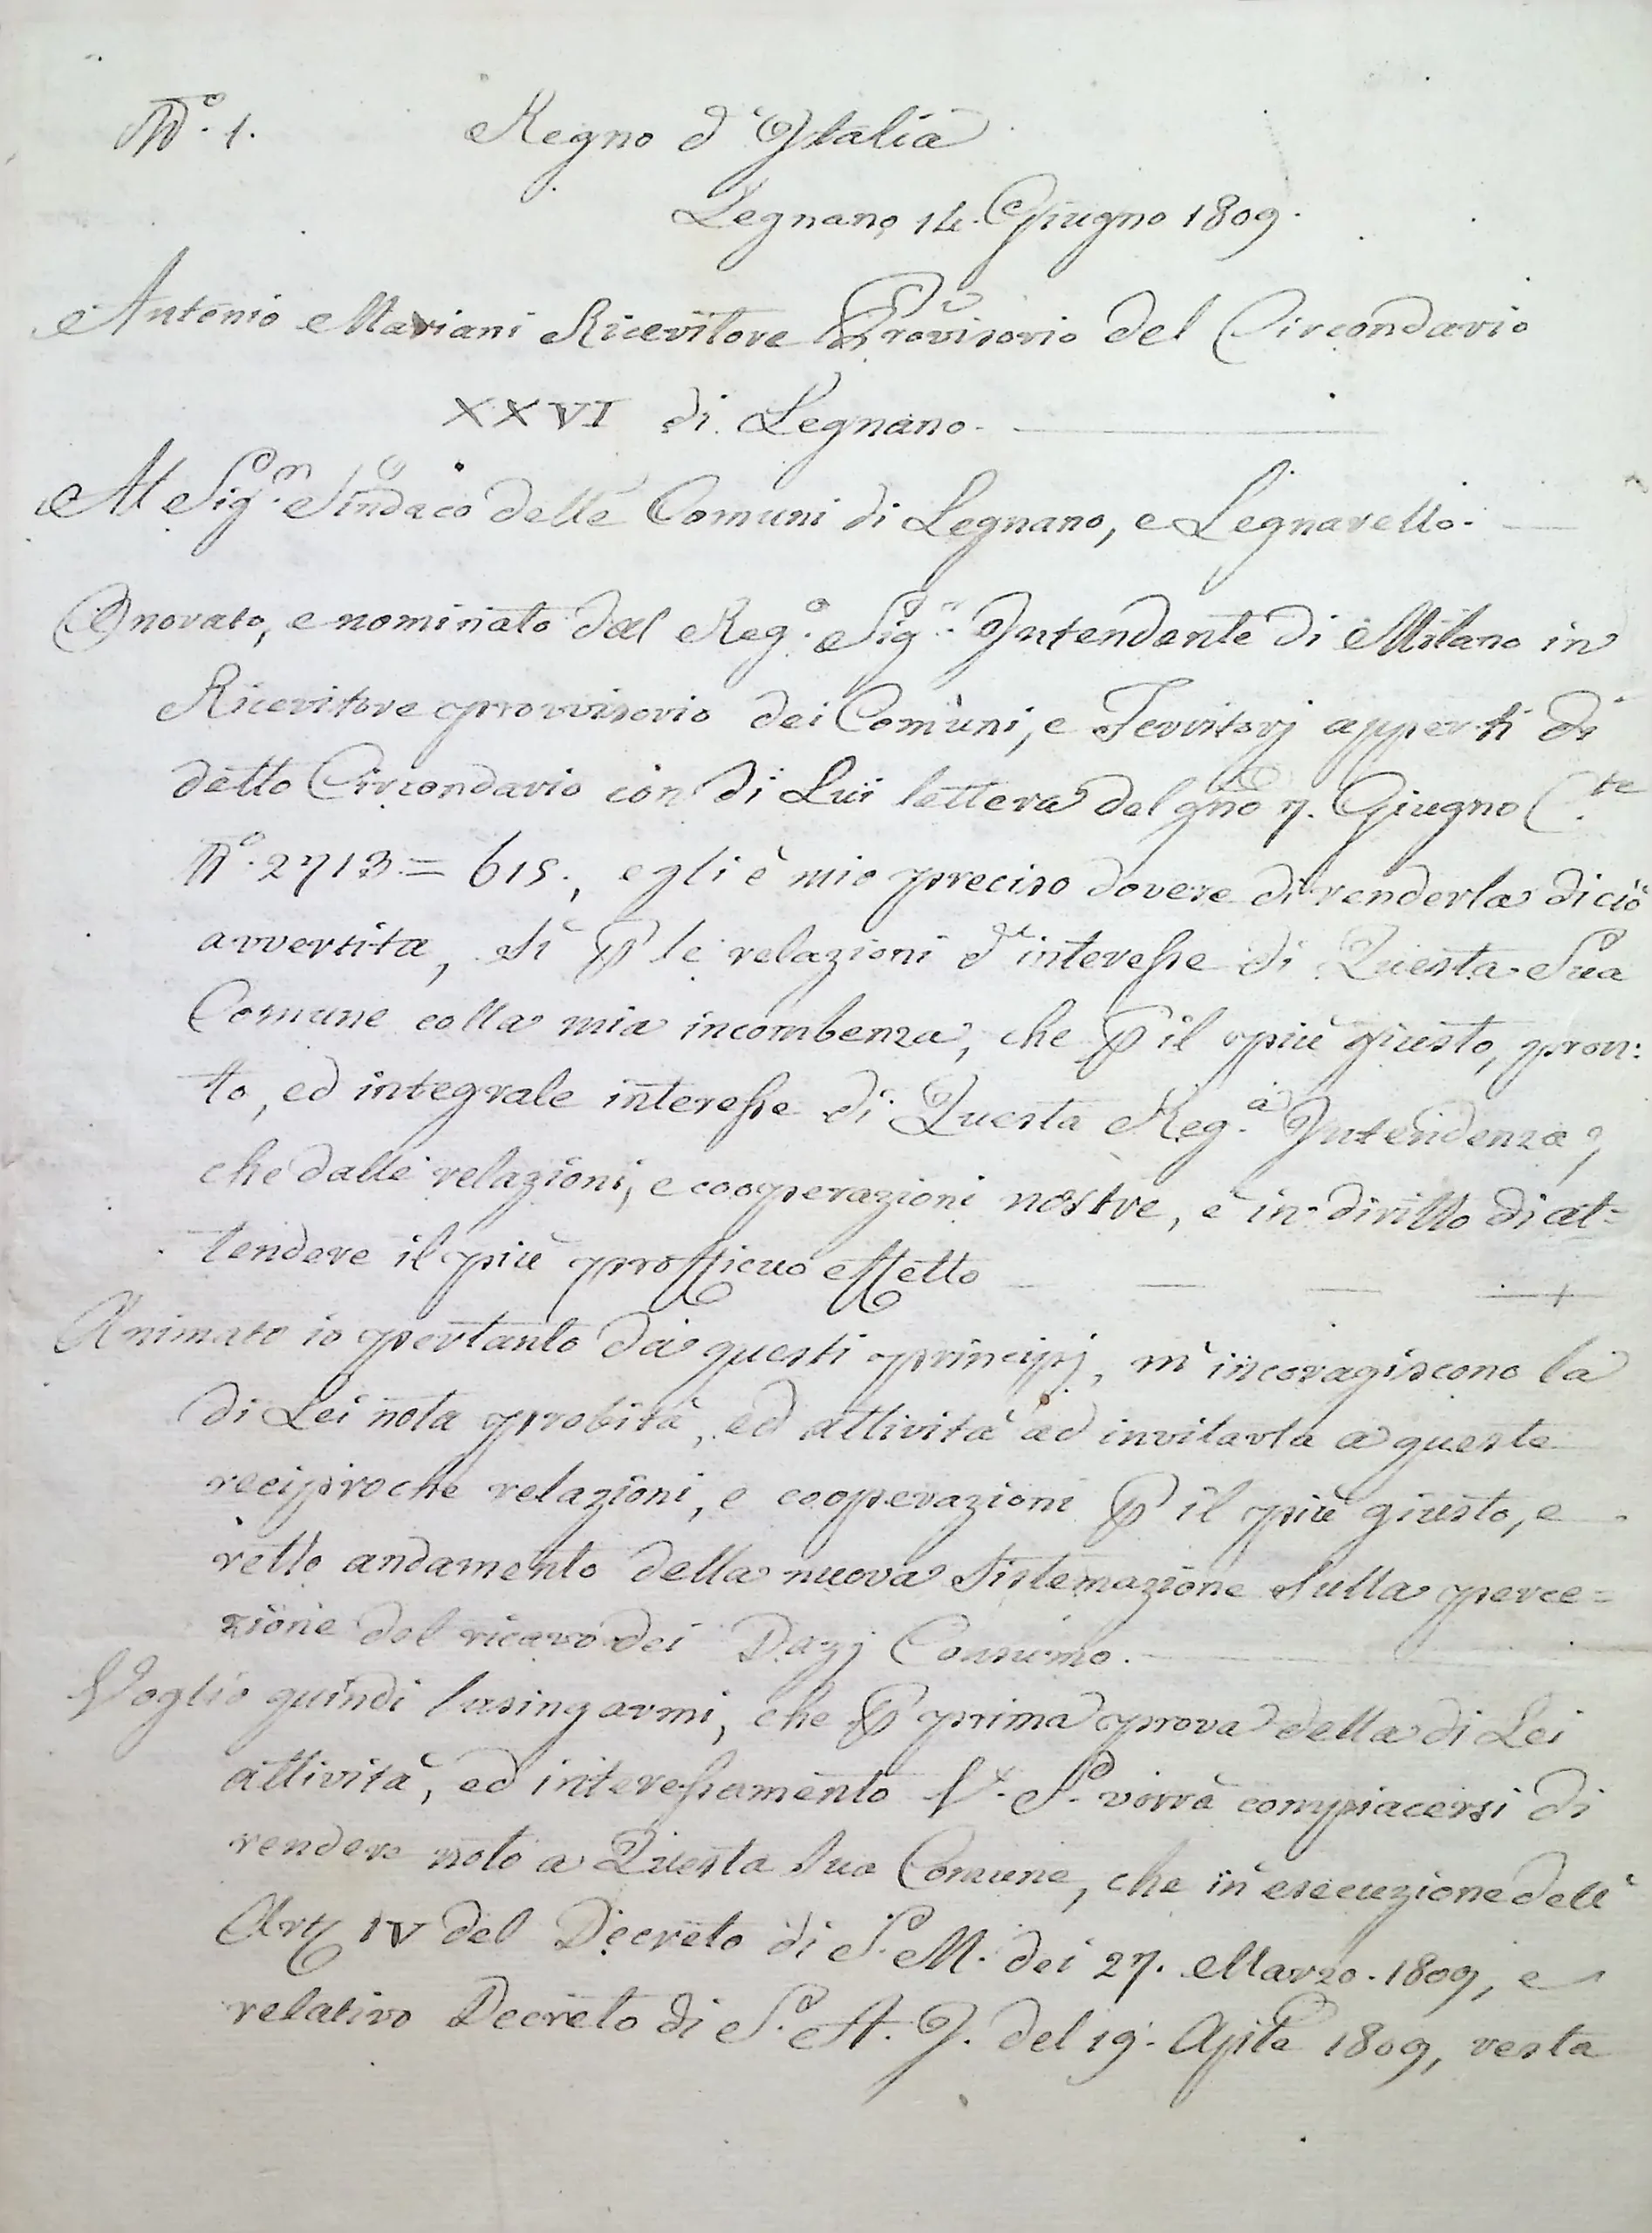 N.º 1. Regno d'Italia
Legnano 14. Giugno 1809.
Antonio Mariani Ricevitore Provisorio del Circondario
XXVI di Legnano.
Al Sig.r Sindaco delle Comuni di Legnano, e Legnarello.
Onorato, e nominato dal Reg.o Sig.r Intendente di Milano in
Ricevitore provvisorio dei Comuni, e Territorj apperti di
detto Circondario con di Lui lettera del gno 7. Giugno C.te
N.º 2713 = 615., egli è mio preciso dovere di renderla di ciò
avvertita, sì p le relazioni d'interesse di Questa Sua
Comune colla mia incombenza, che p il più giusto, pron:
to, ed integrale interesse di Questa Reg.a Intendenza,
che dalle relazioni, e cooperazioni nostre, è in diritto di at=
tendere il più profficuo effetto
Animato io pertanto da questi principj, m'incoragiscono la
di Lei nota probità, ed attività ad invitarla a queste
reciproche relazioni, e cooperazioni p il più giusto, e
retto andamento della nuova sistemazione sulla perce=
zione del ricavo dei Dazj Consumo.
Voglio quindi lusingarmi, che p prima prova della di Lei
attività, ed interessamento V. S. vorrà compiacersi di
rendere noto a Questa sua Comune, che in esecuzione dell'
Art. IV del Decreto di S. M. dei 27. Marzo. 1809, e
relativo Decreto di S. A. I. del 19. Aple 1809, resta